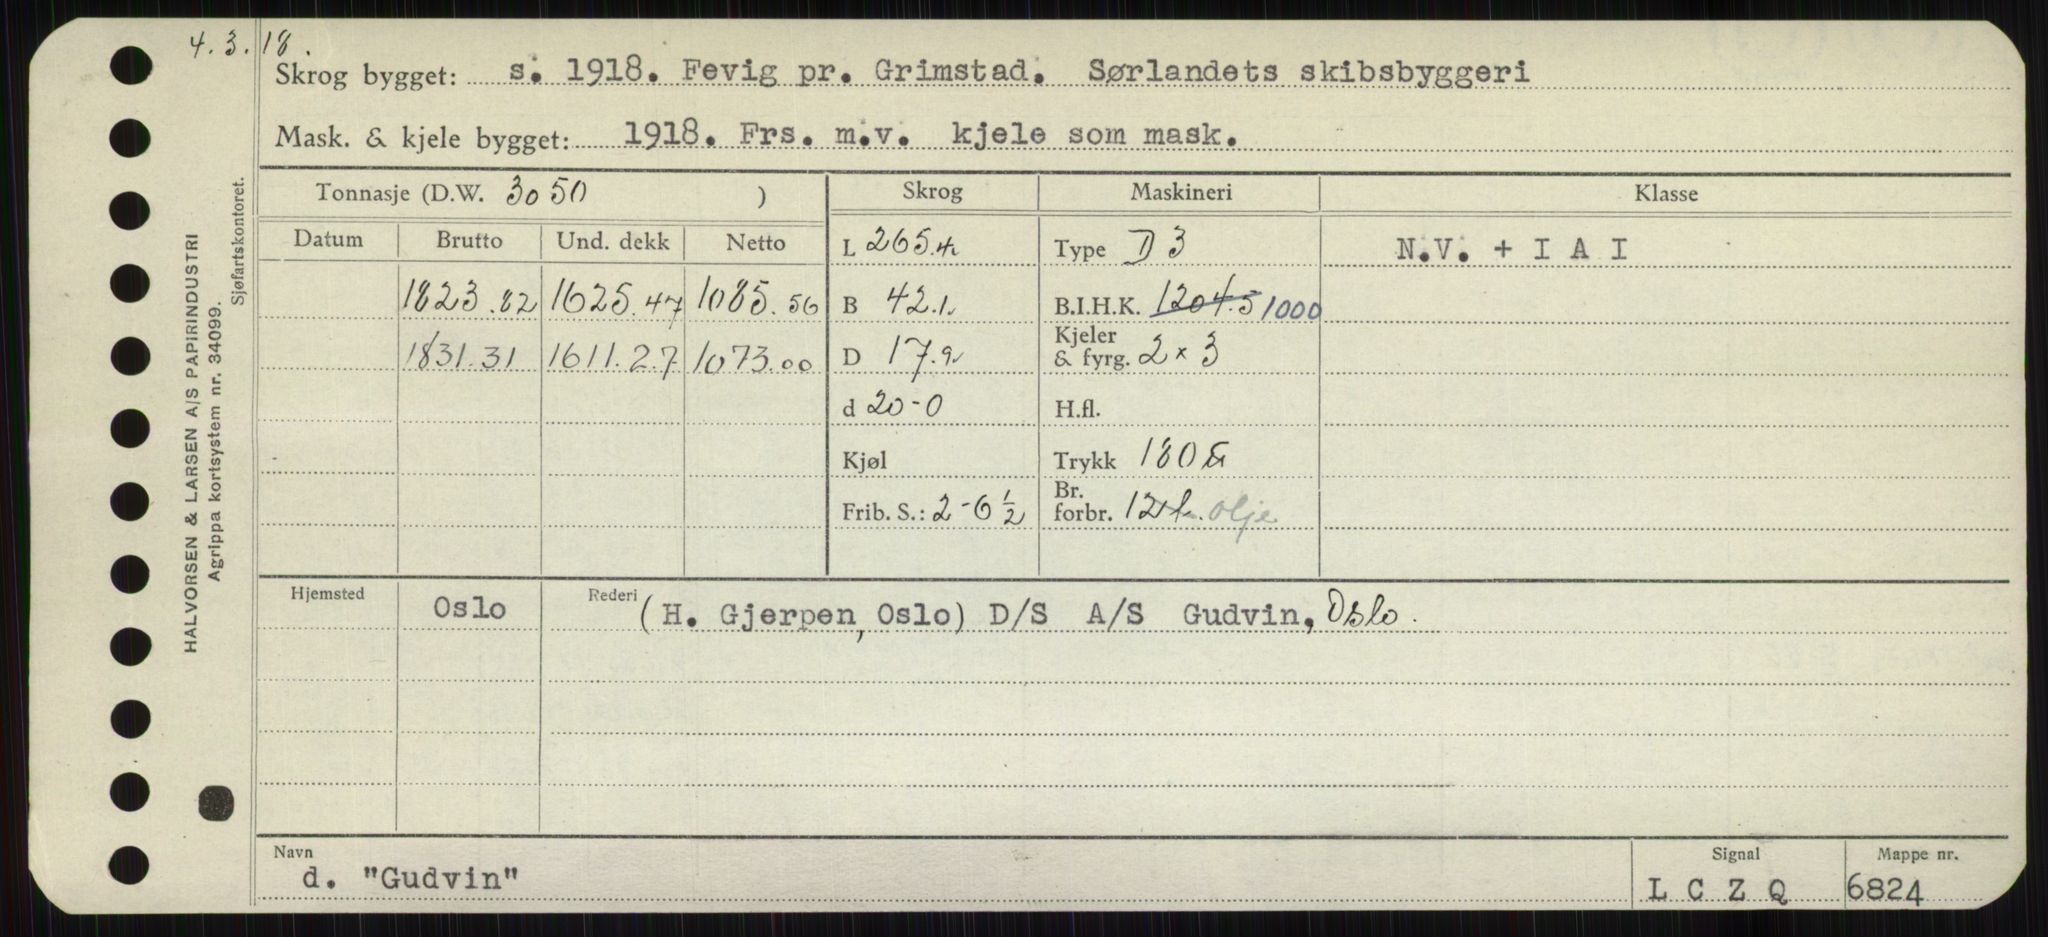 4.3.18.
Skrog bygget: s. 1918. Fevig pr. Grimstad. Sørlandets skibsbyggeri
Mask. & kjele bygget: 1918. Frs. m.v. kjele som mask.
Tonnasje (D.W. 3050 ) Skrog Maskineri Klasse
Datum Brutto Und. dekk Netto L 265.4 Type D 3 N.V. + I A I
1823.82 1625.47 1085.56 B 42.1 B.I.H.K. 1204.5 1000
1831.31 1611.27 1073.00 D 17.9 Kjeler & fyrg. 2 x 3
d 20-0 H.fl.
Kjøl Trykk 180
Frib. S.: 2-6 ½ Br. forbr. 12 olje
Hjemsted Oslo Rederi (H. Gjerpen, Oslo) D/S A/S Gudvin, Oslo.
Navn Signal Mappe nr.
d. "Gudvin" L C Z Q 6824
HALVORSEN & LARSEN A/S PAPIRINDUSTRI
Agrippa kortsystem nr. 34099.
Sjøfartskontoret.